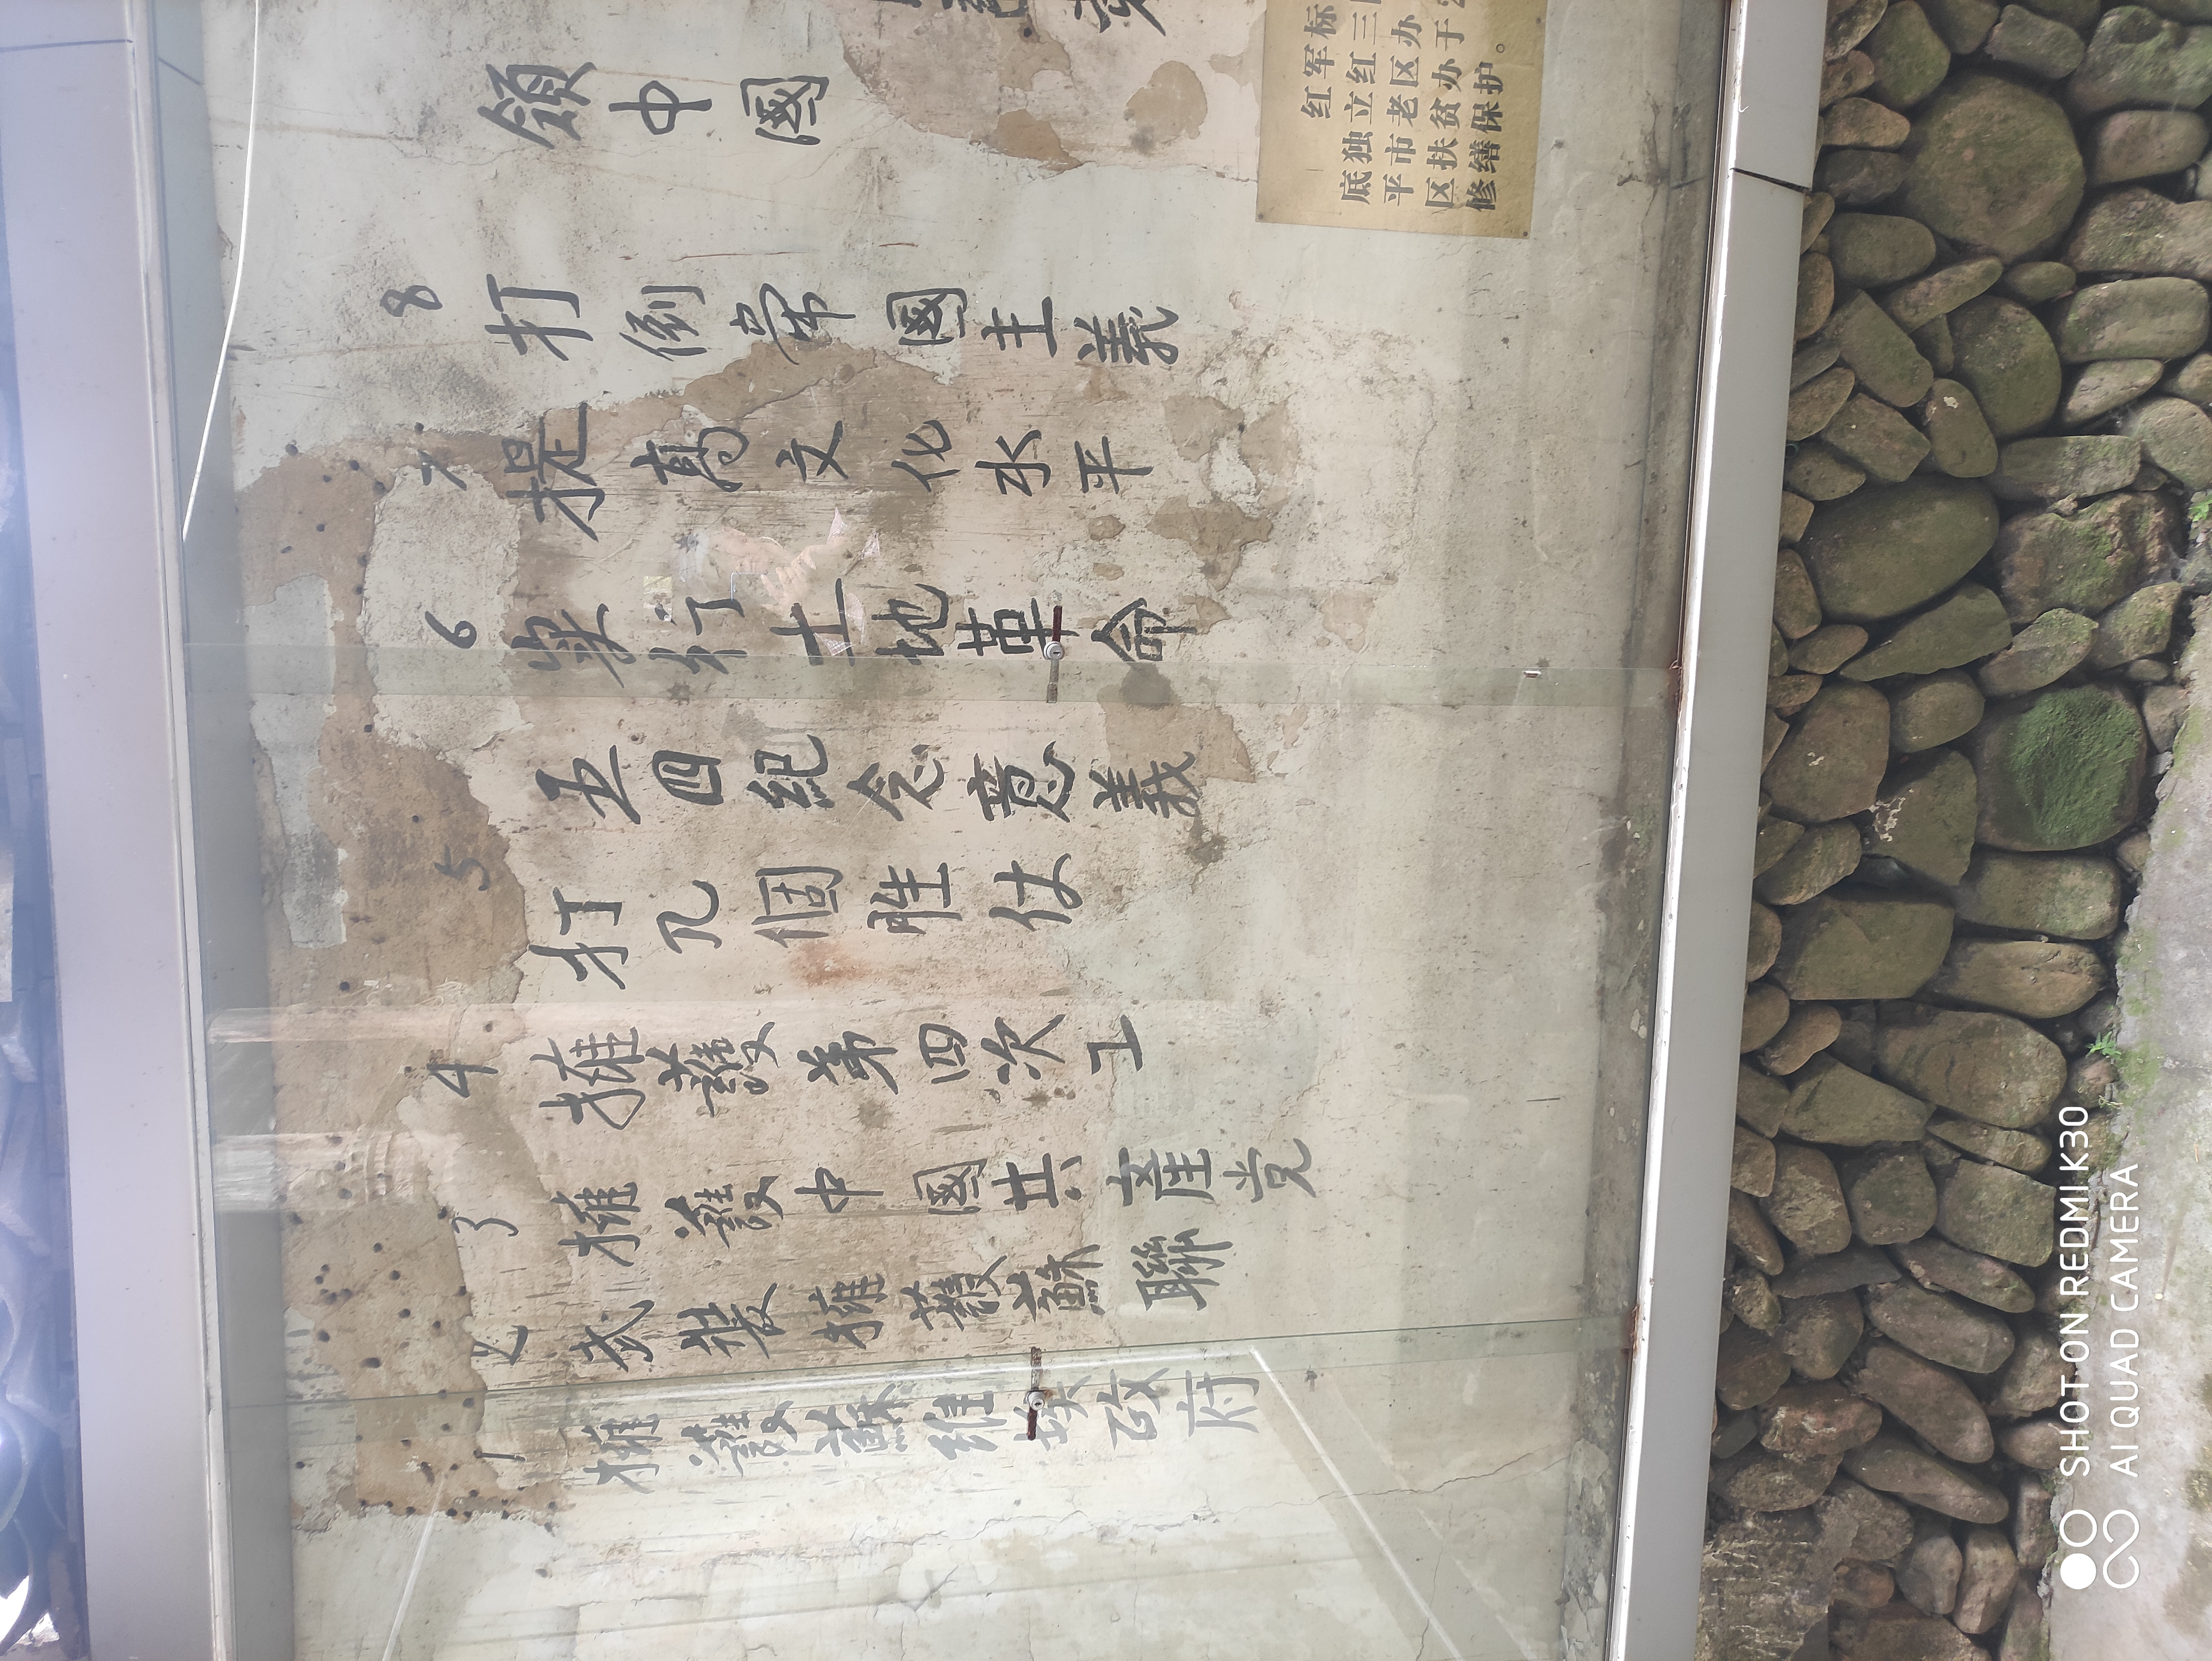 1 擁護蘇維埃政府
2 武裝擁護蘇聯
3 擁護中國共産党
4 擁護第四次工
5 打几個胜仗
五四紀念意義
6 実行土地革命
7 提高文化水平
8 打倒帝國主義
領中國
红军标
底独立红三
平市老区办
区扶贫办于2
修缮保护。
SHOT ON REDMI K30
AI QUAD CAMERA